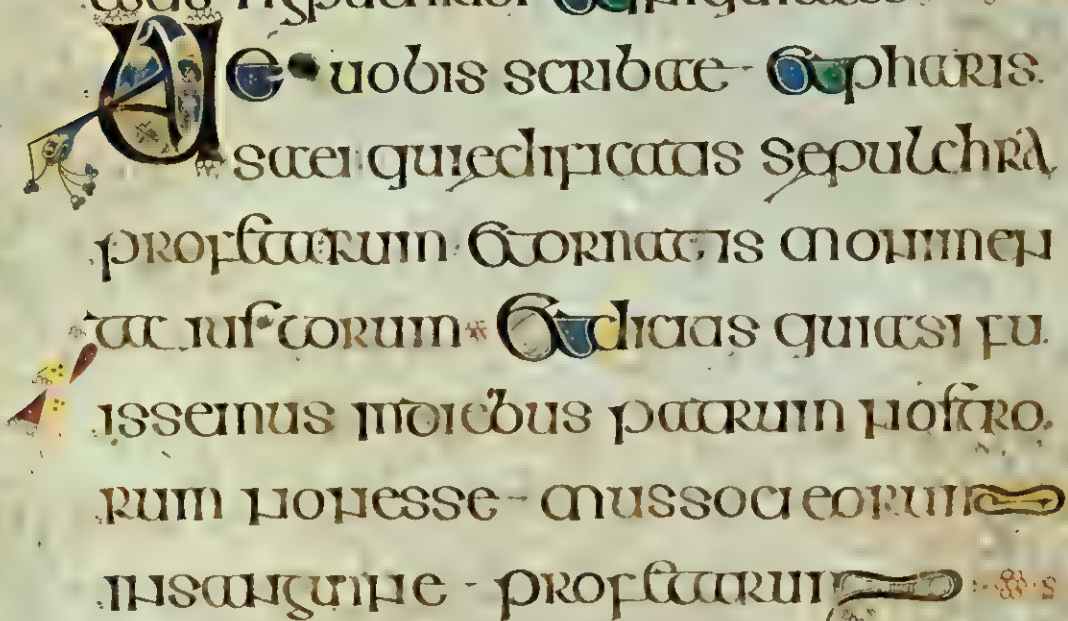 Uae uobis scribae et pharis
saei qui edificatis sepulchra
profetarum et ornatis monumen
ta iustorum et dicitis quia si fu
issemus in diebus patrum nostro
rum non essemus soci eorum
in sanguine profetarum